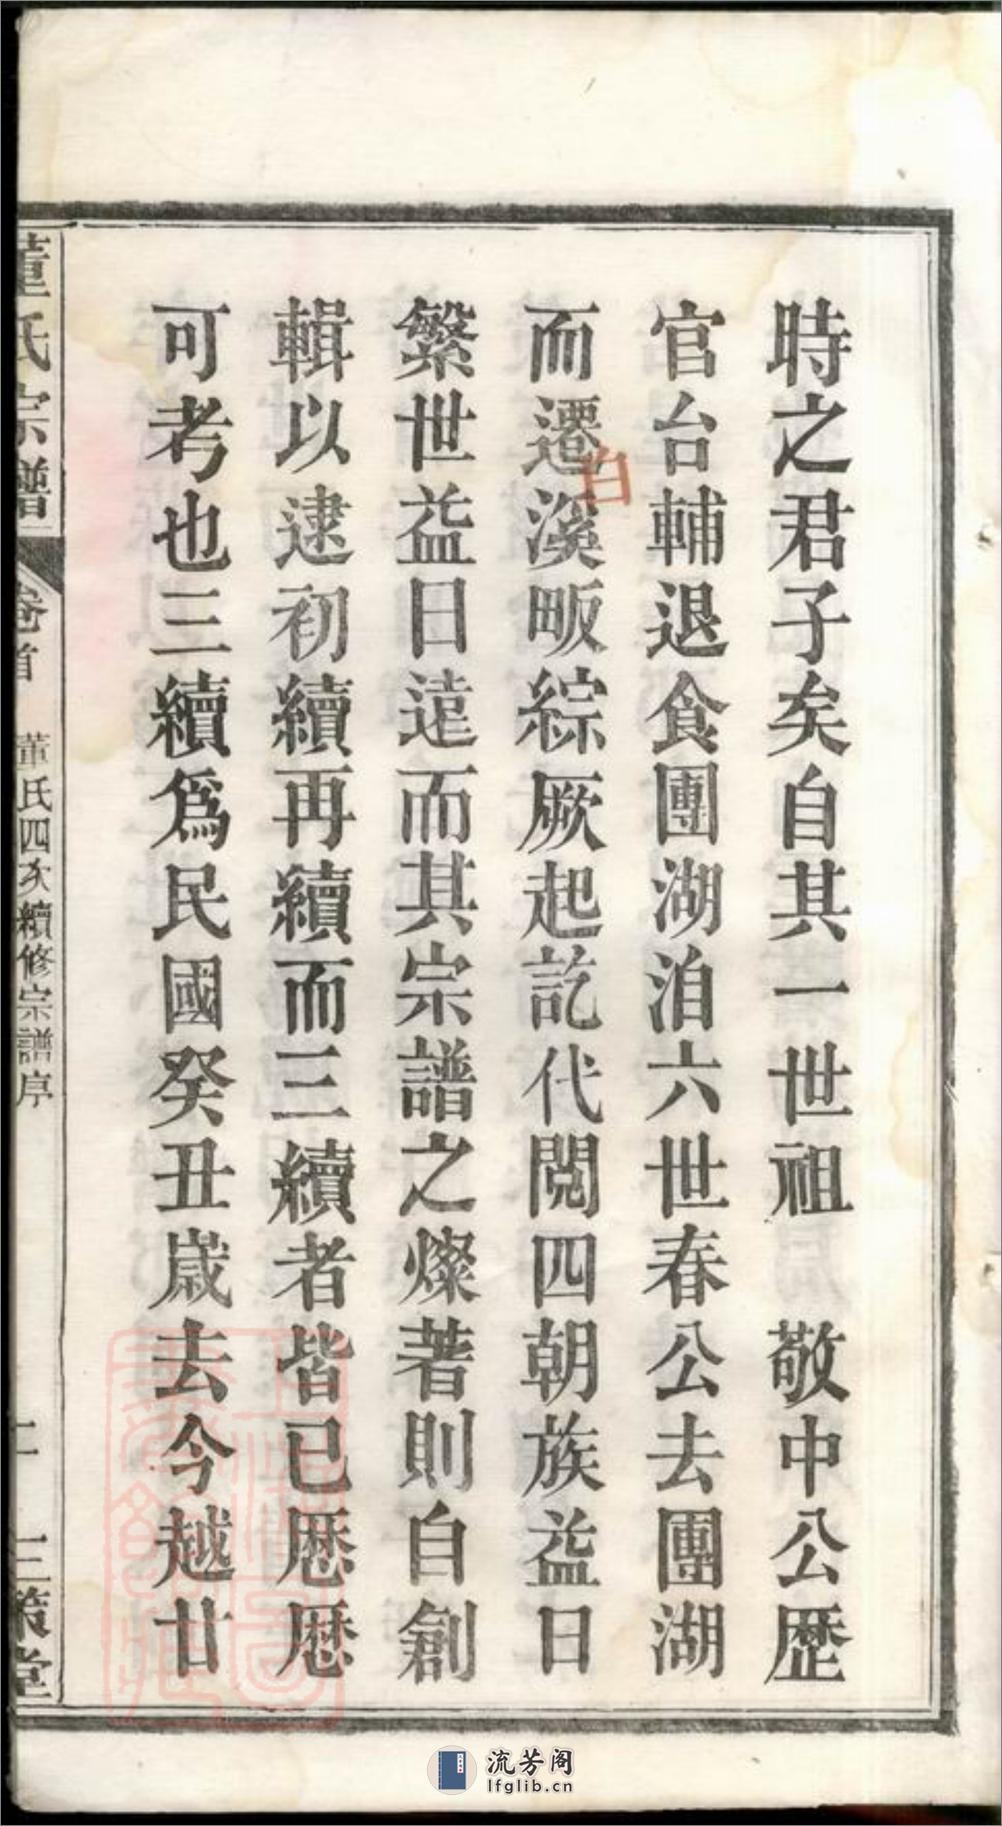 時之君子矣自其一世祖　敬中公歷
官台輔退食團湖洎六世春公去團湖
而遷溪畈綜厥起訖代閱四朝族益日
繁世益日遠而其宗譜之燦著則自創
輯以逮初續再續而三續者皆已歷歷
可考也三續爲民國癸丑歲去今越廿
白
董氏宗譜
卷首
董氏四次續修宗譜序
三策堂
流芳阁
lfglib.cn